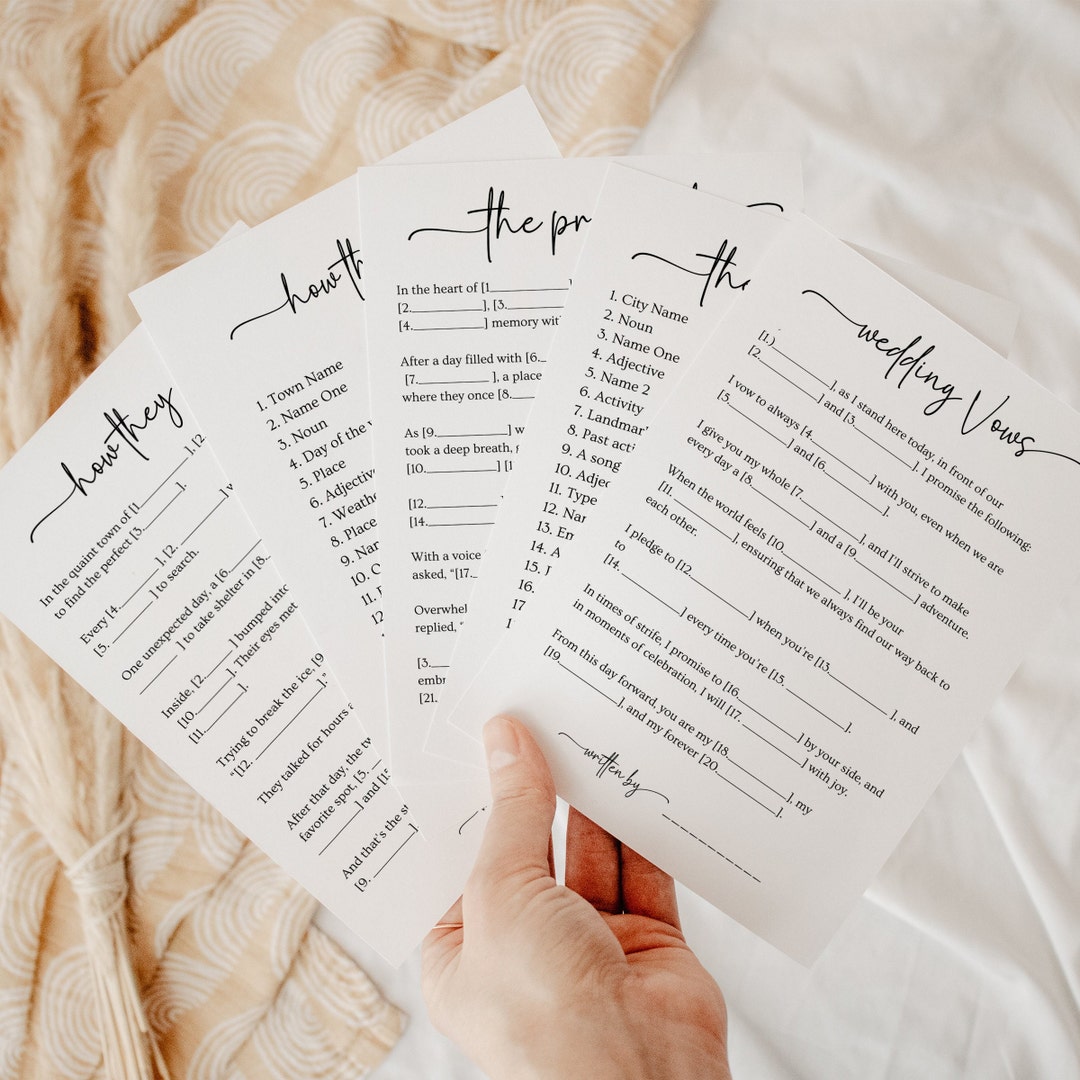 how they
In the quaint town of [1________], [2
to find the perfect [3________].
Every [4________], [2.
[5.________] to search.
One unexpected day, a [6.
________] to take shelter in [8.
Inside, [2.________] bumped into
[10.________]. Their eyes met
[11.________].
Trying to break the ice, [9
"[12.________]."
They talked for hours
After that day, the
favorite spot, [5.
________] and [
And that's the
[9.________]
how
1. Town Name
2. Name One
3. Noun
4. Day of the
5. Place
6. Adjective
7.
8. Place
9.
10.
11.
12
the
In the heart of [1________]
[2.________], [3.
[4.________] memory
After a day filled with [6.
[7.________], a place
where they once [8.
As [9.________]
took a deep breath,
[10.________] [1
[12.
[14.
With a voice
asked, "[17.
replied, "
[3.
[21.
the
1. City Name
2. Noun
3. Name One
4. Adjective
5. Name 2
6. Activity
7.
8. Past
9. A song
10.
11. Type
12.
13.
14. A
15.
16.
17
1
wedding Vows
[1.)________], as I stand here today, in front of our
[2.________] and [3.________]. I promise the following:
I vow to always [4.________] with you, even when we are
[5.________] and [6.________].
I give you my whole [7.________], and I'll strive to make
every day a [8.________] and a [9.________] adventure.
When the world feels [10.________], I'll be your
[11.________], ensuring that we always find our way back to
each other.
I pledge to [12.________] when you're [13.________], and
to
[14.________] every time you're [15.________].
In times of strife, I promise to [16.________] by your side, and
in moments of celebration, I will [17.________] with joy.
From this day forward, you are my [18.________], my
[19.________], and my forever [20.________].
written by